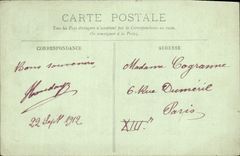 CARTE POSTALE
Tous les Pays étrangers n'acceptent pas la Correspondance au recto.
(Se renseigner à la Poste).
CORRESPONDANCE
ADRESSE
Bons souvenirs
22 Sept 1912
Madame Cogranne
6 Rue Duméril
Paris
XIII